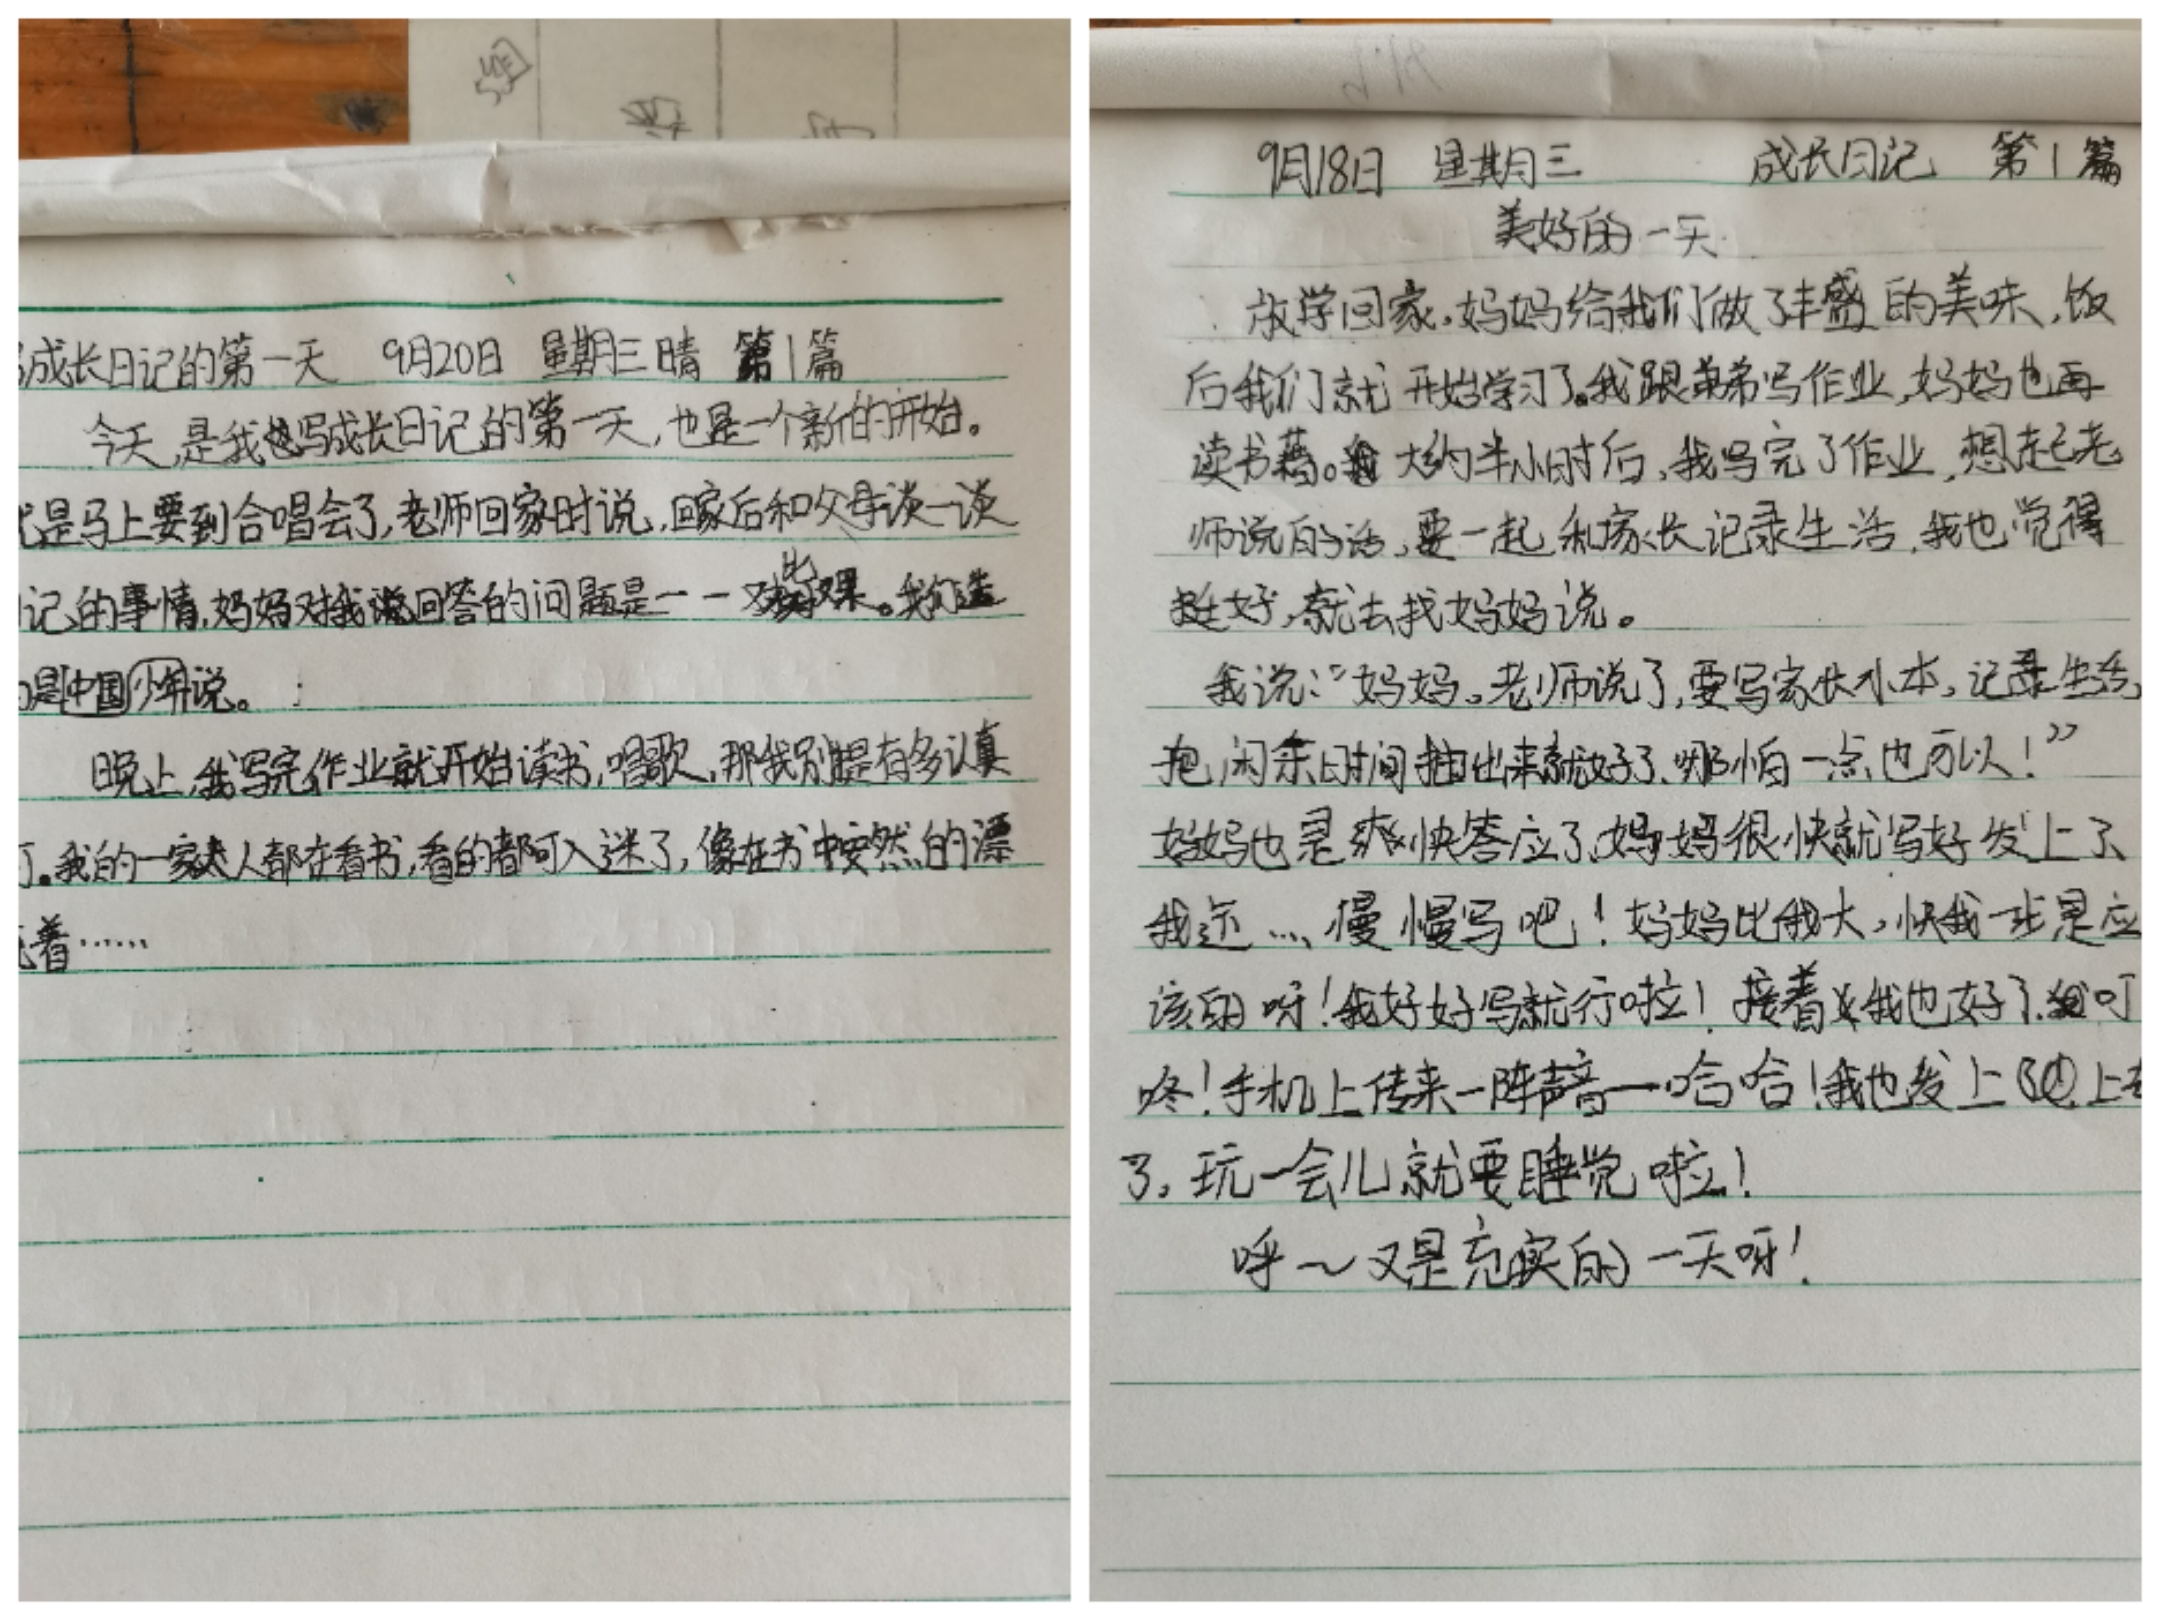 成长日记的第一天 9月20日 星期三 晴 第1篇
今天,是我写成长日记的第一天,也是一个新的开始。
是马上要到合唱会了,老师回家时说,回家后和父母谈一谈
记的事情,妈妈对我回答的问题是——对比
是中国少年说。
晚上,我写完作业就开始读书,唱歌,那我别提有多认真
了。我的一家人都在看书,看的都可入迷了,像在书中安然的漂
着……
9月18日 星期三 成长日记 第1篇
美好的一天
放学回家,妈妈给我们做了丰盛的美味,饭
后我们就开始学习了。我跟弟弟写作业,妈妈也再
读书籍。大约半小时后,我写完了作业,想起老
师说的话,要一起和家长记录生活,我也觉得
挺好,就去找妈妈说。
我说:“妈妈。老师说了,要写家长小本,记录生活,
把闲余时间抽出来就好了,哪怕一点也可以!”
妈妈也是爽快答应了,妈妈很快就写好发上了、
我还…,慢慢写吧!妈妈比我大,快我一步是应
该的呀!我好好写就行啦!接着我也好了,叮
咚!手机上传来一阵声音——哈哈!我也发上上去
了,玩一会儿就要睡觉啦!
呼~又是充实的一天呀!